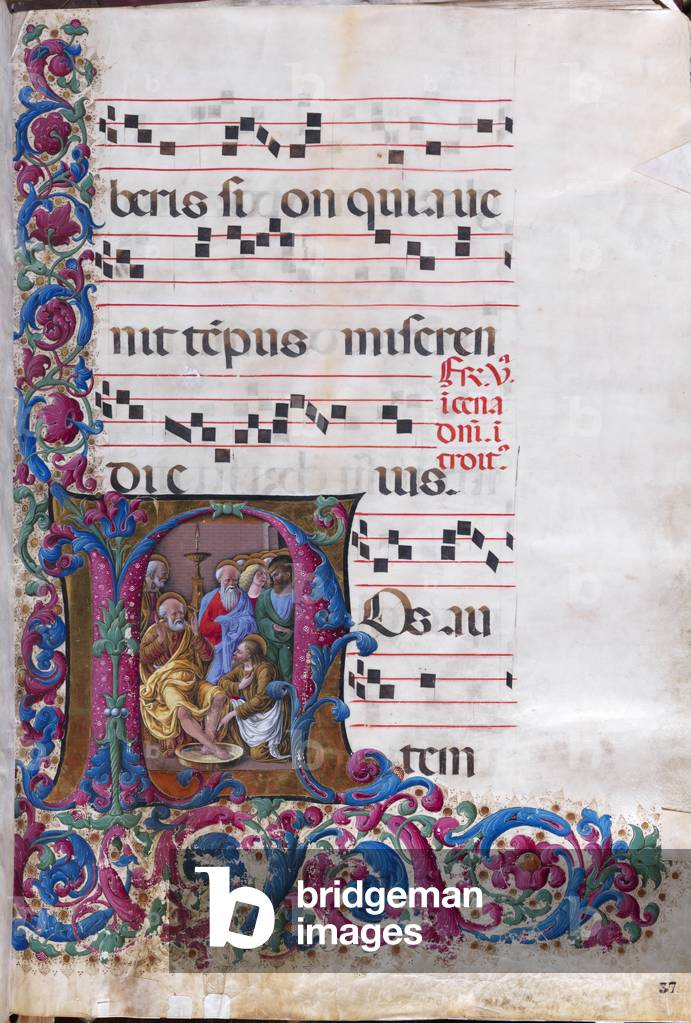 beris si on quia ue
nit tēpus miseren
Fr.V.ᵃ
i cena
dnī. i
troitᵒ
di e ius.
NOs au
tem
bridgeman
images
37